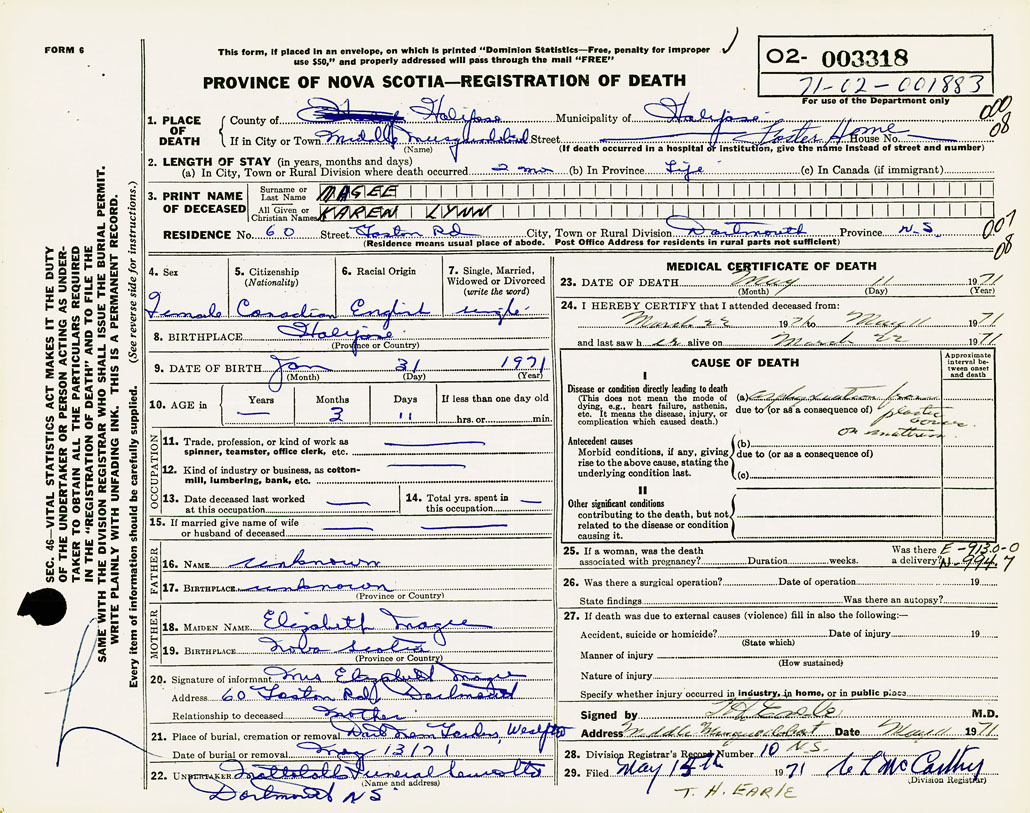 FORM 6
This form, if placed in an envelope, on which is printed "Dominion Statistics—Free, penalty for improper
use $50," and properly addressed will pass through the mail "FREE"
PROVINCE OF NOVA SCOTIA—REGISTRATION OF DEATH
02- 003318
71-02-001883
For use of the Department only
SEC. 46—VITAL STATISTICS ACT MAKES IT THE DUTY
OF THE UNDERTAKER OR PERSON ACTING AS UNDER-
TAKER TO OBTAIN ALL THE PARTICULARS REQUIRED
IN THE "REGISTRATION OF DEATH" AND TO FILE THE
SAME WITH THE DIVISION REGISTRAR WHO SHALL ISSUE THE BURIAL PERMIT.
WRITE PLAINLY WITH UNFADING INK. THIS IS A PERMANENT RECORD.
Every item of information should be carefully supplied. (See reverse side for instructions.)
1. PLACE OF DEATH
County of Halifax Municipality of Halifax 000
08
If in City or Town Middle Musquodoboit Street Foster Home House No.
(Name) (If death occurred in a hospital or institution, give the name instead of street and number)
2. LENGTH OF STAY (in years, months and days)
(a) In City, Town or Rural Division where death occurred 2 mo (b) In Province Life (c) In Canada (if immigrant)
3. PRINT NAME OF DECEASED
Surname or Last Name MAGEE
All Given or Christian Names KAREN LYNN
RESIDENCE No. 60 Street Rd City, Town or Rural Division Dartmouth Province N.S. 007
08
(Residence means usual place of abode. Post Office Address for residents in rural parts not sufficient)
4. Sex Female
5. Citizenship (Nationality) Canadian
6. Racial Origin English
7. Single, Married, Widowed or Divorced (write the word) single
8. BIRTHPLACE Halifax
(Province or Country)
9. DATE OF BIRTH Jan 31 1971
(Month) (Day) (Year)
10. AGE in Years — Months 3 Days 11 If less than one day old hrs. or min.
OCCUPATION
11. Trade, profession, or kind of work as spinner, teamster, office clerk, etc. —
12. Kind of industry or business, as cotton-mill, lumbering, bank, etc. —
13. Date deceased last worked at this occupation —
14. Total yrs. spent in this occupation —
15. If married give name of wife or husband of deceased — —
FATHER
16. NAME unknown
17. BIRTHPLACE unknown
(Province or Country)
MOTHER
18. MAIDEN NAME Elizabeth Magee
19. BIRTHPLACE Nova Scotia
(Province or Country)
20. Signature of informant Mrs Elizabeth Magee
Address 60 Rd Dartmouth
Relationship to deceased Mother
21. Place of burial, cremation or removal Dart Mem Gardens,
Date of burial or removal May 13/71
22. UNDERTAKER Funeral
(Name and address)
Dartmouth NS
MEDICAL CERTIFICATE OF DEATH
23. DATE OF DEATH May 11 1971
(Month) (Day) (Year)
24. I HEREBY CERTIFY that I attended deceased from:
March 22 1971 to May 11 1971
and last saw her alive on March 22 1971
CAUSE OF DEATH
Approximate interval between onset and death
I
Disease or condition directly leading to death
(This does not mean the mode of dying, e.g., heart failure, asthenia, etc. It means the disease, injury, or complication which caused death.)
(a) from
due to (or as a consequence of) plastic
cover
on mattress.
Antecedent causes
Morbid conditions, if any, giving rise to the above cause, stating the underlying condition last.
(b)
due to (or as a consequence of)
(c)
II
Other significant conditions
contributing to the death, but not related to the disease or condition causing it.
25. If a woman, was the death associated with pregnancy? Duration weeks. Was there a delivery? E-913.0-0
N-994.7
26. Was there a surgical operation? Date of operation 19
State findings Was there an autopsy?
27. If death was due to external causes (violence) fill in also the following:—
Accident, suicide or homicide? Date of injury 19
(State which)
Manner of injury
(How sustained)
Nature of injury
Specify whether injury occurred in industry, in home, or in public place
Signed by M.D.
Address Middle Musquodoboit Date May 11 1971
N.S.
28. Division Registrar's Record Number 10
29. Filed May 15th 1971 C L McCarthy
(Division Registrar)
T. H. EARLE